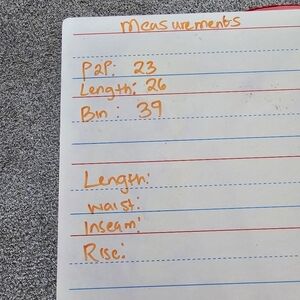 Measurements
P2P: 23
Length: 26
Bin: 39
Length:
Waist:
Inseam:
Rise: